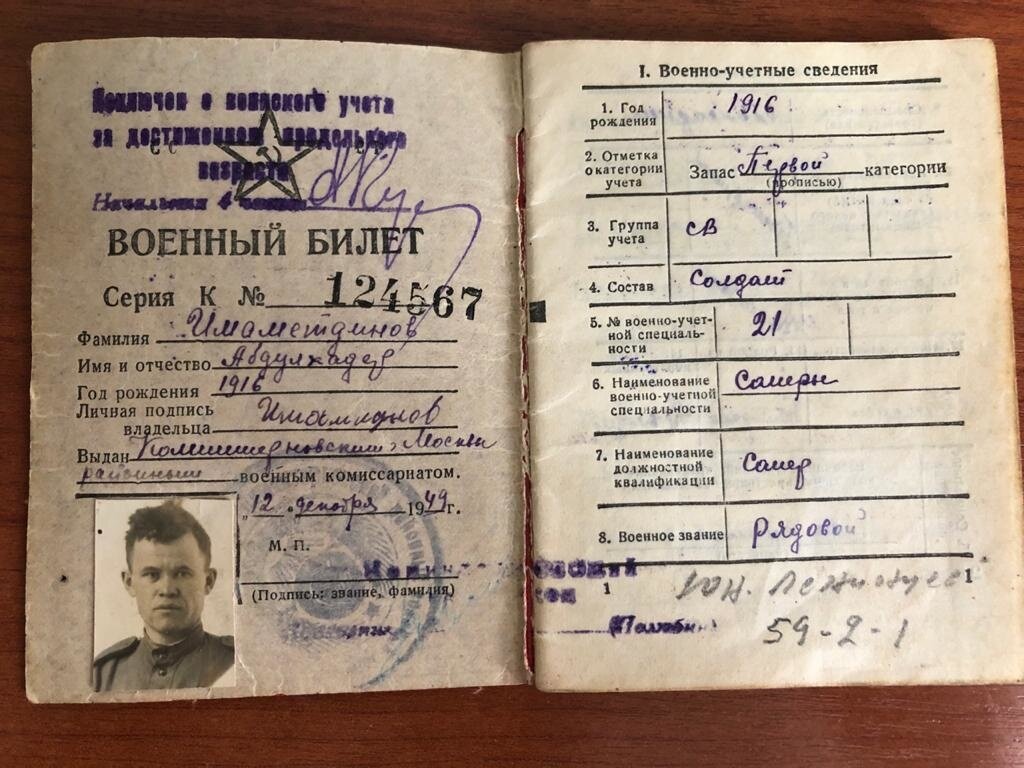 Исключен с воинского учета
за достижением предельного
возраста
Начальник 4
ВОЕННЫЙ БИЛЕТ
Серия К № 124567
Фамилия Имаметдинов
Имя и отчество Абдулхадер
Год рождения 1916
Личная подпись
владельца
Выдан Москвы
районным военным комиссариатом.
"12" декабря 1949 г.
М. П.
(Подпись: звание, фамилия)
I. Военно-учетные сведения
1. Год
рождения 1916
2. Отметка
о категории
учета Запас Первой категории
(прописью)
3. Группа
учета СВ
4. Состав Солдат
5. № военно-учет-
ной специаль-
ности 21
6. Наименование
военно-учетной
специальности Саперы
7. Наименование
должностной
квалификации Сапер
8. Военное звание Рядовой
1 1
59-2-1